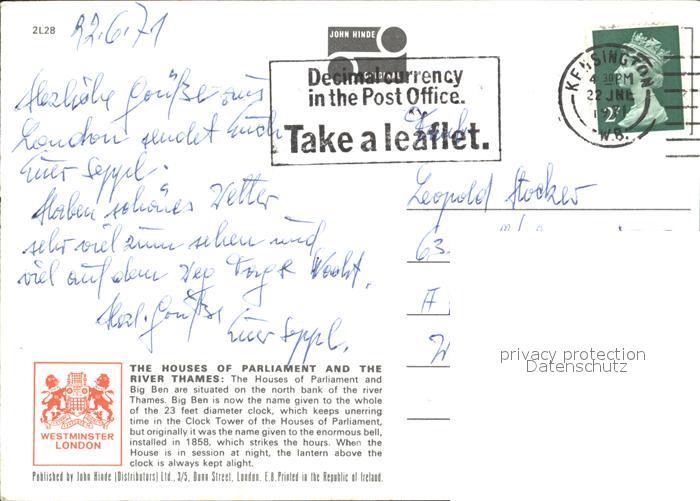 2L28
22.6.71
JOHN HINDE
ORIGINAL
Decimal currency
in the Post Office.
Take a leaflet.
KENSINGTON
4 30PM
22 JNE
1971
W8.
2½
Herzliche Grüße aus
London sendet Euch
Euer Seppl.
Haben schönes Wetter
sehr viel zum sehen und
viel auf dem Weg Tag & Nacht.
Herzl. Grüße
Euer Seppl.
Leopold Stocker
63
A
W
privacy protection
Datenschutz
WESTMINSTER
LONDON
THE HOUSES OF PARLIAMENT AND THE
RIVER THAMES: The Houses of Parliament and
Big Ben are situated on the north bank of the river
Thames. Big Ben is now the name given to the whole
of the 23 feet diameter clock, which keeps unerring
time in the Clock Tower of the Houses of Parliament,
but originally it was the name given to the enormous bell,
installed in 1858, which strikes the hours. When the
House is in session at night, the lantern above the
clock is always kept alight.
Published by John Hinde (Distributors) Ltd., 3/5, Dunn Street, London. E.8. Printed in the Republic of Ireland.